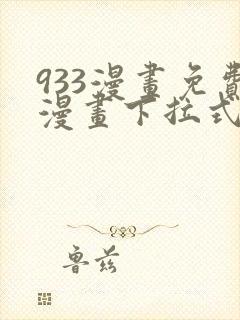 933漫畫免費
漫畫下拉式
魯兹